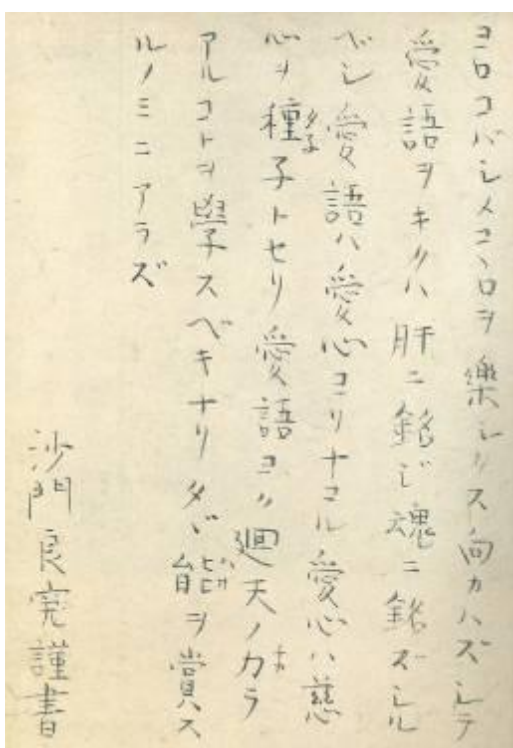 ヨロコバシメコヽロヲ樂シクス向カハズシテ
愛語ヲキクハ肝ニ銘ジ魂ニ銘ズシル
ベシ愛語ハ愛心ヨリオコル愛心ハ慈
心ヲ種子トセリ愛語ヨク廻天ノチカラ
アルコトヲ學スベキナリタヾ能ヲ賞ス
ルノミニアラズ
沙門良寛謹書